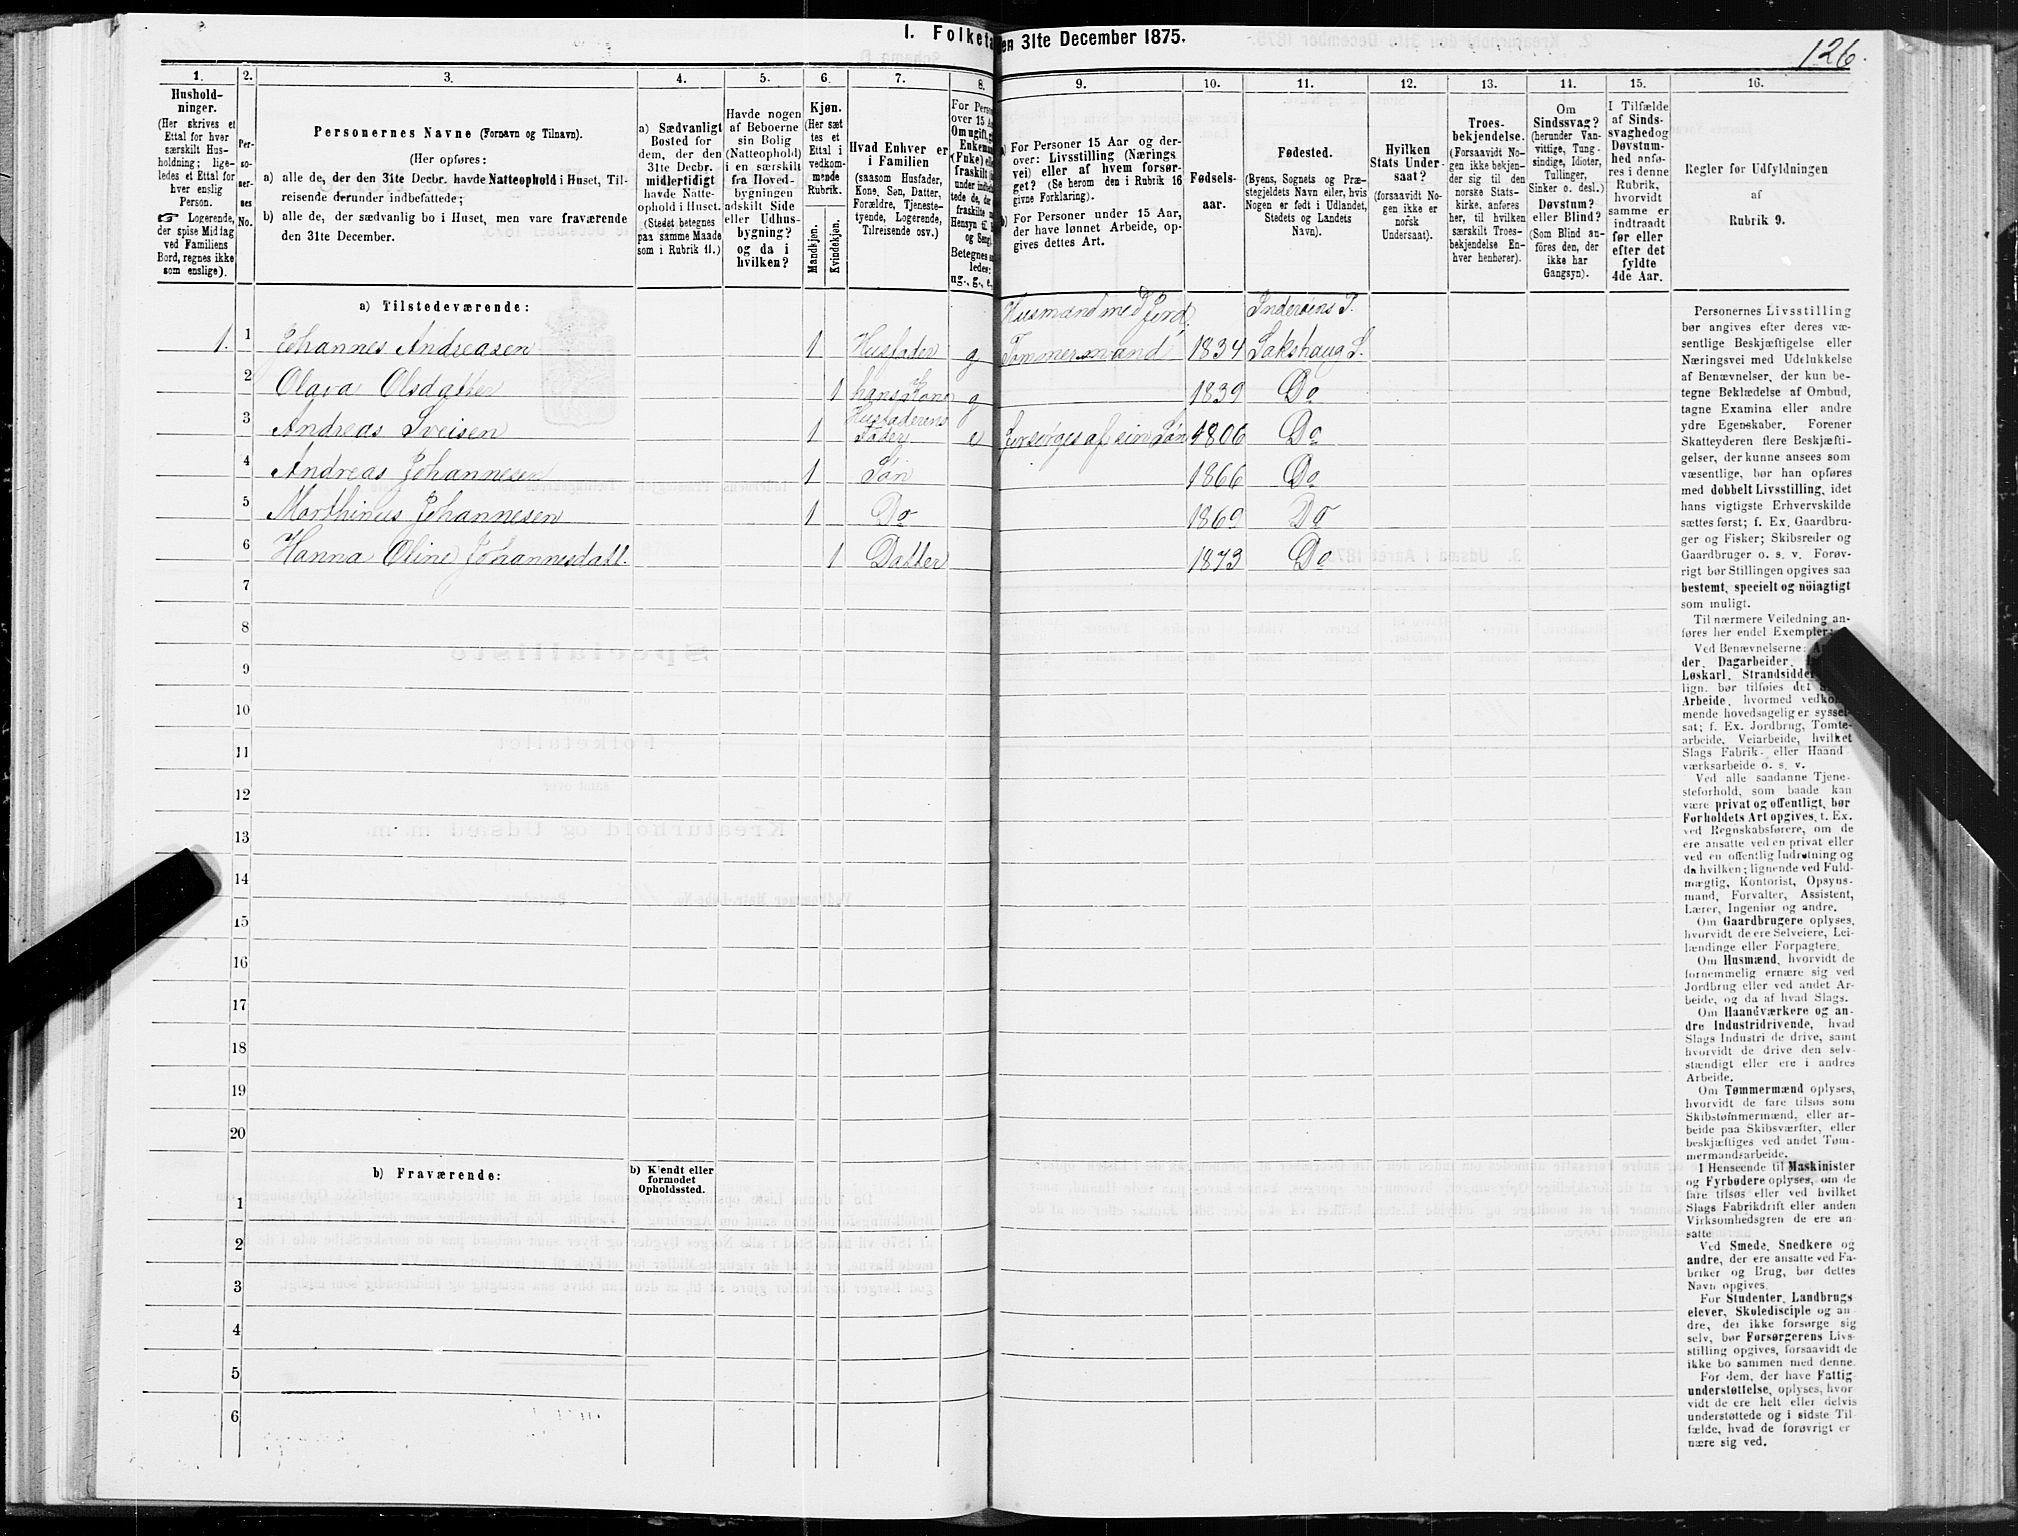 I. Folketa en 31te December 1875.
126.
1.
2.
3.
4.
5.
6.
7.
8.
9.
10.
11.
12.
13.
14.
15.
16.
Hushold-
ninger.
(Her skrives et
Ettal for hver
særskilt Hus-
holdning; lige-
ledes et Ettal for
hver enslig
Person.
☞ Logerende,
der spise Middag
ved Familiens
Bord, regnes ikke
som enslige).
Per-
so-
ner-
nes
No.
Personernes Navne (Fornavn og Tilnavn).
(Her opføres:
a) alle de, der den 31te Decbr. havde Natteophold i Huset, Til-
reisende derunder indbefattede;
b) alle de, der sædvanlig bo i Huset, men vare fraværende
den 31te December.
a) Sædvanligt
Bosted for
dem, der den
31te Decbr.
midlertidigt
havde Natte-
ophold i Huset.
(Stedet betegnes
paa samme Maade
som i Rubrik 11.)
Havde nogen
af Beboerne
sin Bolig
(Natteophold)
i en særskilt
fra Hoved-
bygningen
adskilt Side
eller Udhus-
bygning?
og da i
hvilken?
Kjøn.
(Her sæt
tes et
Ettal i
vedkom-
mende
Rubrik.
Mandkjøn.
Kvindekjøn.
Hvad Enhver er
i Familien
(saasom Husfader,
Kone, Søn, Datter,
Forældre, Tjeneste-
tyende, Logerende,
Tilreisende osv.)
For Person
over 15 A
Om ugift, g
Enkeman
(Enke) ell
fraskilt
under indbe
tede de, de
fraskilte m
Hensyn til
og Seng
Betegnes s
ledes:
ug., g., e.,
a) For Personer 15 Aar og der-
over: Livsstilling (Nærings
vei) eller af hvem forsør-
get? (Se herom den i Rubrik 16
givne Forklaring).
b) For Personer under 15 Aar,
der have lønnet Arbeide, op-
gives dettes Art.
Fødsels-
aar.
Fødested.
(Byens, Sognets og Præ-
stegjeldets Navn eller, hvis
Nogen er født i Udlandet,
Stedets og Landets
Navn).
Hvilken
Stats Under-
saat?
(forsaavidt No-
gen ikke er
norsk
Undersaat).
Troes-
bekjendelse.
(Forsaavidt No-
gen ikke bekjen-
der sig til den
norske Stats-
kirke, anføres
her, til hvilken
særskilt Troes-
bekjendelse En-
hver henhører).
Om
Sindssvag?
(herunder Van-
vittige, Tung-
sindige, Idioter,
Sinker o. desl.)
Døvstum?
eller Blind?
(Som Blind an-
føres den, der
ikke har
Gangsyn).
I Tilfælde
af Sinds-
svaghed og
Døvstum-
hed anfø-
res i denne
Rubrik,
hvorvidt
samme er
indtraadt
før eller
efter det
fyldte
4de Aar.
Regler for Udfyldningen
af
Rubrik 9.
a) Tilstedeværende:
Husmand med Jord. Inderøens P.
1. 1 Johannes Andreasen 1 Husfader g Tømmermand 1834 Sakshaug S.
2 Olava Olsdatter 1 hans Kone g 1839 Do
Husfaderens
3 Andreas Sveisen 1 Fader e forsørges af sin Søn 1806 Do
4 Andreas Johannesen 1 Søn 1866 Do
5 Marthinus Johannesen 1 Do 1869 Do
6 Hanna Oline Johannesdatt. 1 Datter 1873 Do
7
8
9
10
11
12
13
14
15
16
17
18
19
20
b) Fraværende:
b) Kjendt eller
formodet
Opholdssted.
1
2
3
4
5
6
Personernes Livsstilling
bør angives efter deres væ-
sentlige Beskjæftigelse eller
Næringsvei med Udelukkelse
af Benævnelser, der kun be-
tegne Beklædelse af Ombud,
tagne Examina eller andre
ydre Egenskaber. Forener
Skatteyderen flere Beskjæfti-
gelser, der kunne ansees som
væsentlige, bør han opføres
med dobbelt Livsstilling, idet
hans vigtigste Erhvervskilde
sættes først; f. Ex. Gaardbru-
ger og Fisker; Skibsreder og
Gaardbruger o. s. v. Forøv-
rigt bør Stillingen opgives saa
bestemt, specielt og nöiagtigt
som muligt.
Til nærmere Veiledning an-
føres her endel Exempler:
Ved Benævnelserne:
der, Dagarbeider,
Løskarl, Strandsidder
lign. bør tilføies det
Arbeide, hvormed vedkom-
mende hovedsagelig er syssel-
sat; f. Ex. Jordbrug, Tomte-
arbeide, Veiarbeide, hvilket
Slags Fabrik- eller Haand-
værksarbeide o. s. v.
Ved alle saadanne Tjene-
steforhold, som baade kan
være privat og offentligt, bør
Forholdets Art opgives, t. Ex.
ved Regnskabsførere, om de
ere ansatte ved en privat eller
ved en offentlig Indretning og
da hvilken; lignende ved Fuld-
mægtig, Kontorist, Opsyns-
mand, Forvalter, Assistent,
Lærer, Ingeniør og andre.
Om Gaardbrugere oplyses,
hvorvidt de ere Selveiere, Lei-
lændinge eller Forpagtere.
Om Husmænd, hvorvidt de
fornemmelig ernære sig ved
Jordbrug eller ved andet Ar-
beide, og da af hvad Slags.
Om Haandværkere og an-
dre Industridrivende, hvad
Slags Industri de drive, samt
hvorvidt de drive den selv-
stændigt eller ere i andres
Arbeide.
Om Tømmermænd oplyses,
hvorvidt de fare tilsøs som
Skibstømmermænd, eller ar-
beide paa Skibsværfter, eller
beskjæftiges ved andet Tøm-
mermandsarbeide.
I Henseende til Maskinister
og Fyrbødere oplyses, om de
fare tilsøs eller ved hvilket
Slags Fabrikdrift eller anden
Virksomhedsgren de ere an-
satte
Ved Smede, Snedkere og
andre, der ere ansatte ved Fa-
briker og Brug, bør dettes
Navn opgives.
For Studenter, Landbrugs
elever, Skoledisciple og an-
dre, der ikke forsørge sig
selv, bør Forsørgerens Livs-
stilling opgives, forsaavidt de
ikke bo sammen med denne.
For dem, der have Fattig
understøttelse, oplyses, hvor
vidt de ere helt eller delvis
understøttede og i sidste Til-
fælde, hvad de forøvrigt er
nære sig ved.